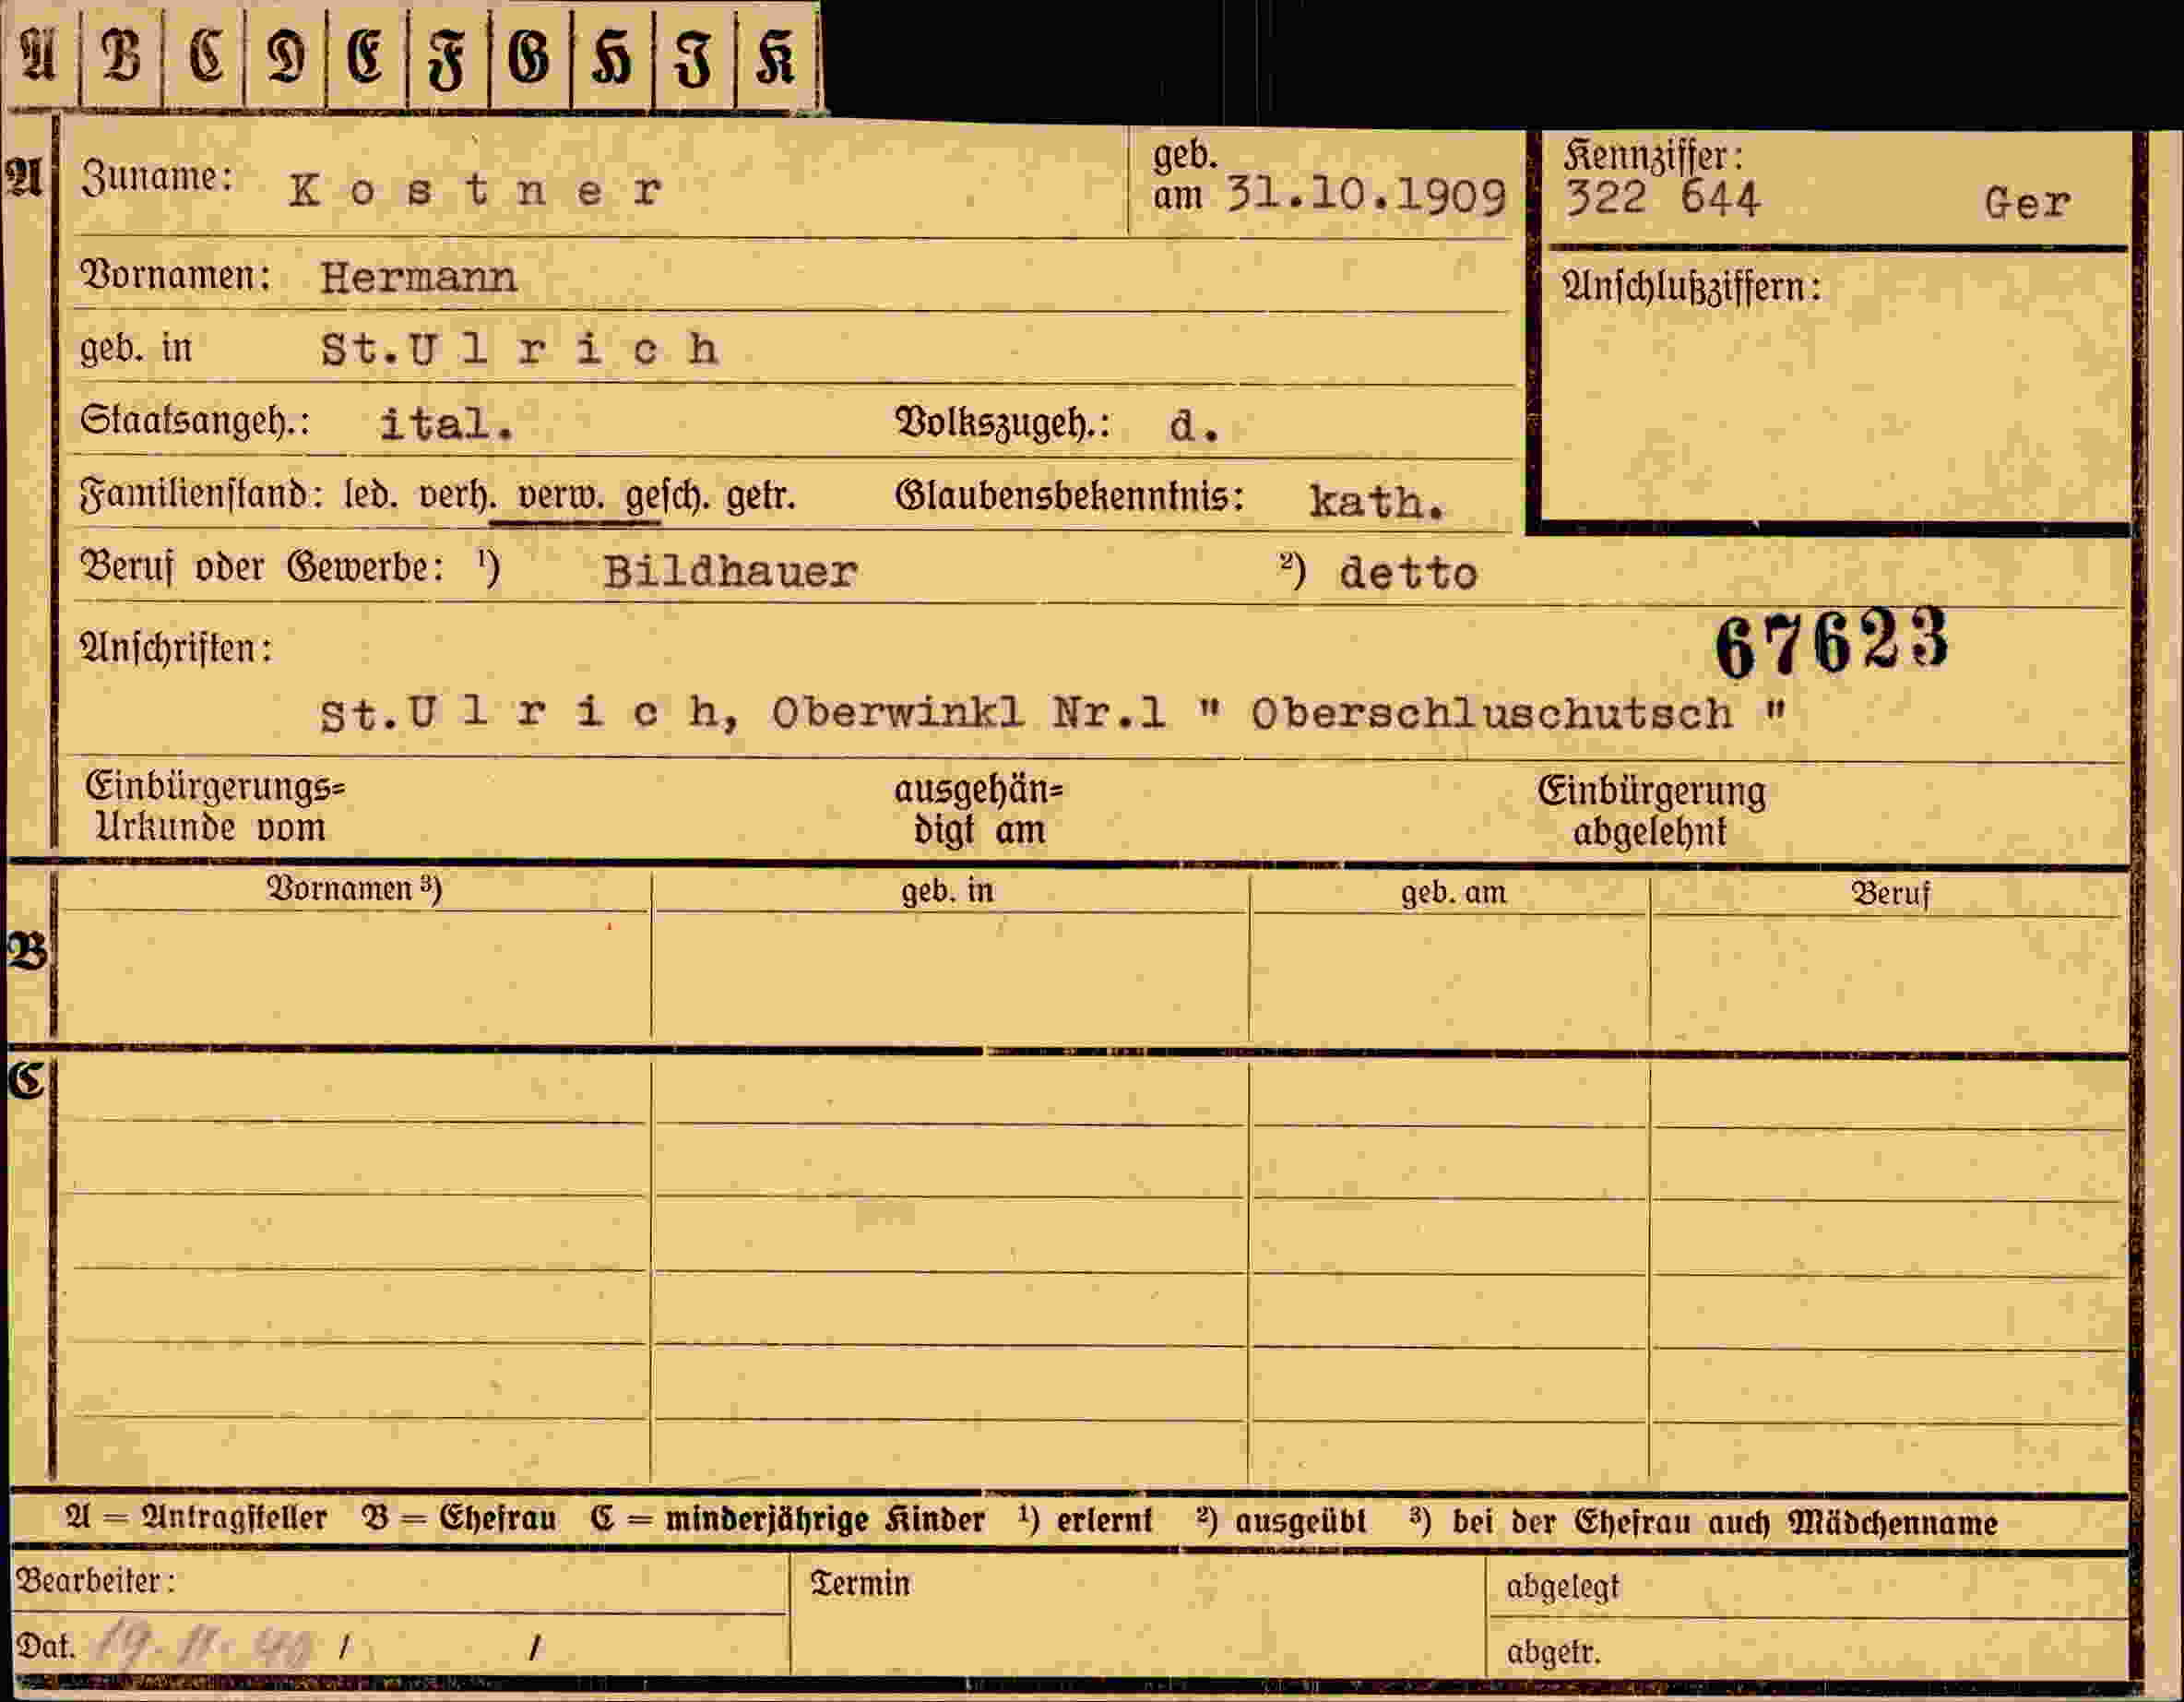 A B C D E F G H I K
A Zuname: Kostner geb. am 31.10.1909 Kennziffer: 322 644 Ger
Vornamen: Hermann Anschlußziffern:
geb. in St.Ulrich
Staatsangeh.: ital. Volkszugeh.: d.
Familienstand: led. verh. verw. gesch. getr. Glaubensbekenntnis: kath.
Beruf oder Gewerbe: ¹) Bildhauer ²) detto
Anschriften: 67623
St.Ulrich, Oberwinkl Nr.1 " Oberschluschutsch "
Einbürgerungs= ausgehän= Einbürgerung
Urkunde vom digt am abgelehnt
Vornamen ³) geb. in geb. am Beruf
B
C
A = Antragsteller B = Ehefrau C = minderjährige Kinder ¹) erlernt ²) ausgeübt ³) bei der Ehefrau auch Mädchenname
Bearbeiter: Termin abgelegt
Dat. 19.11.40 / / abgetr.